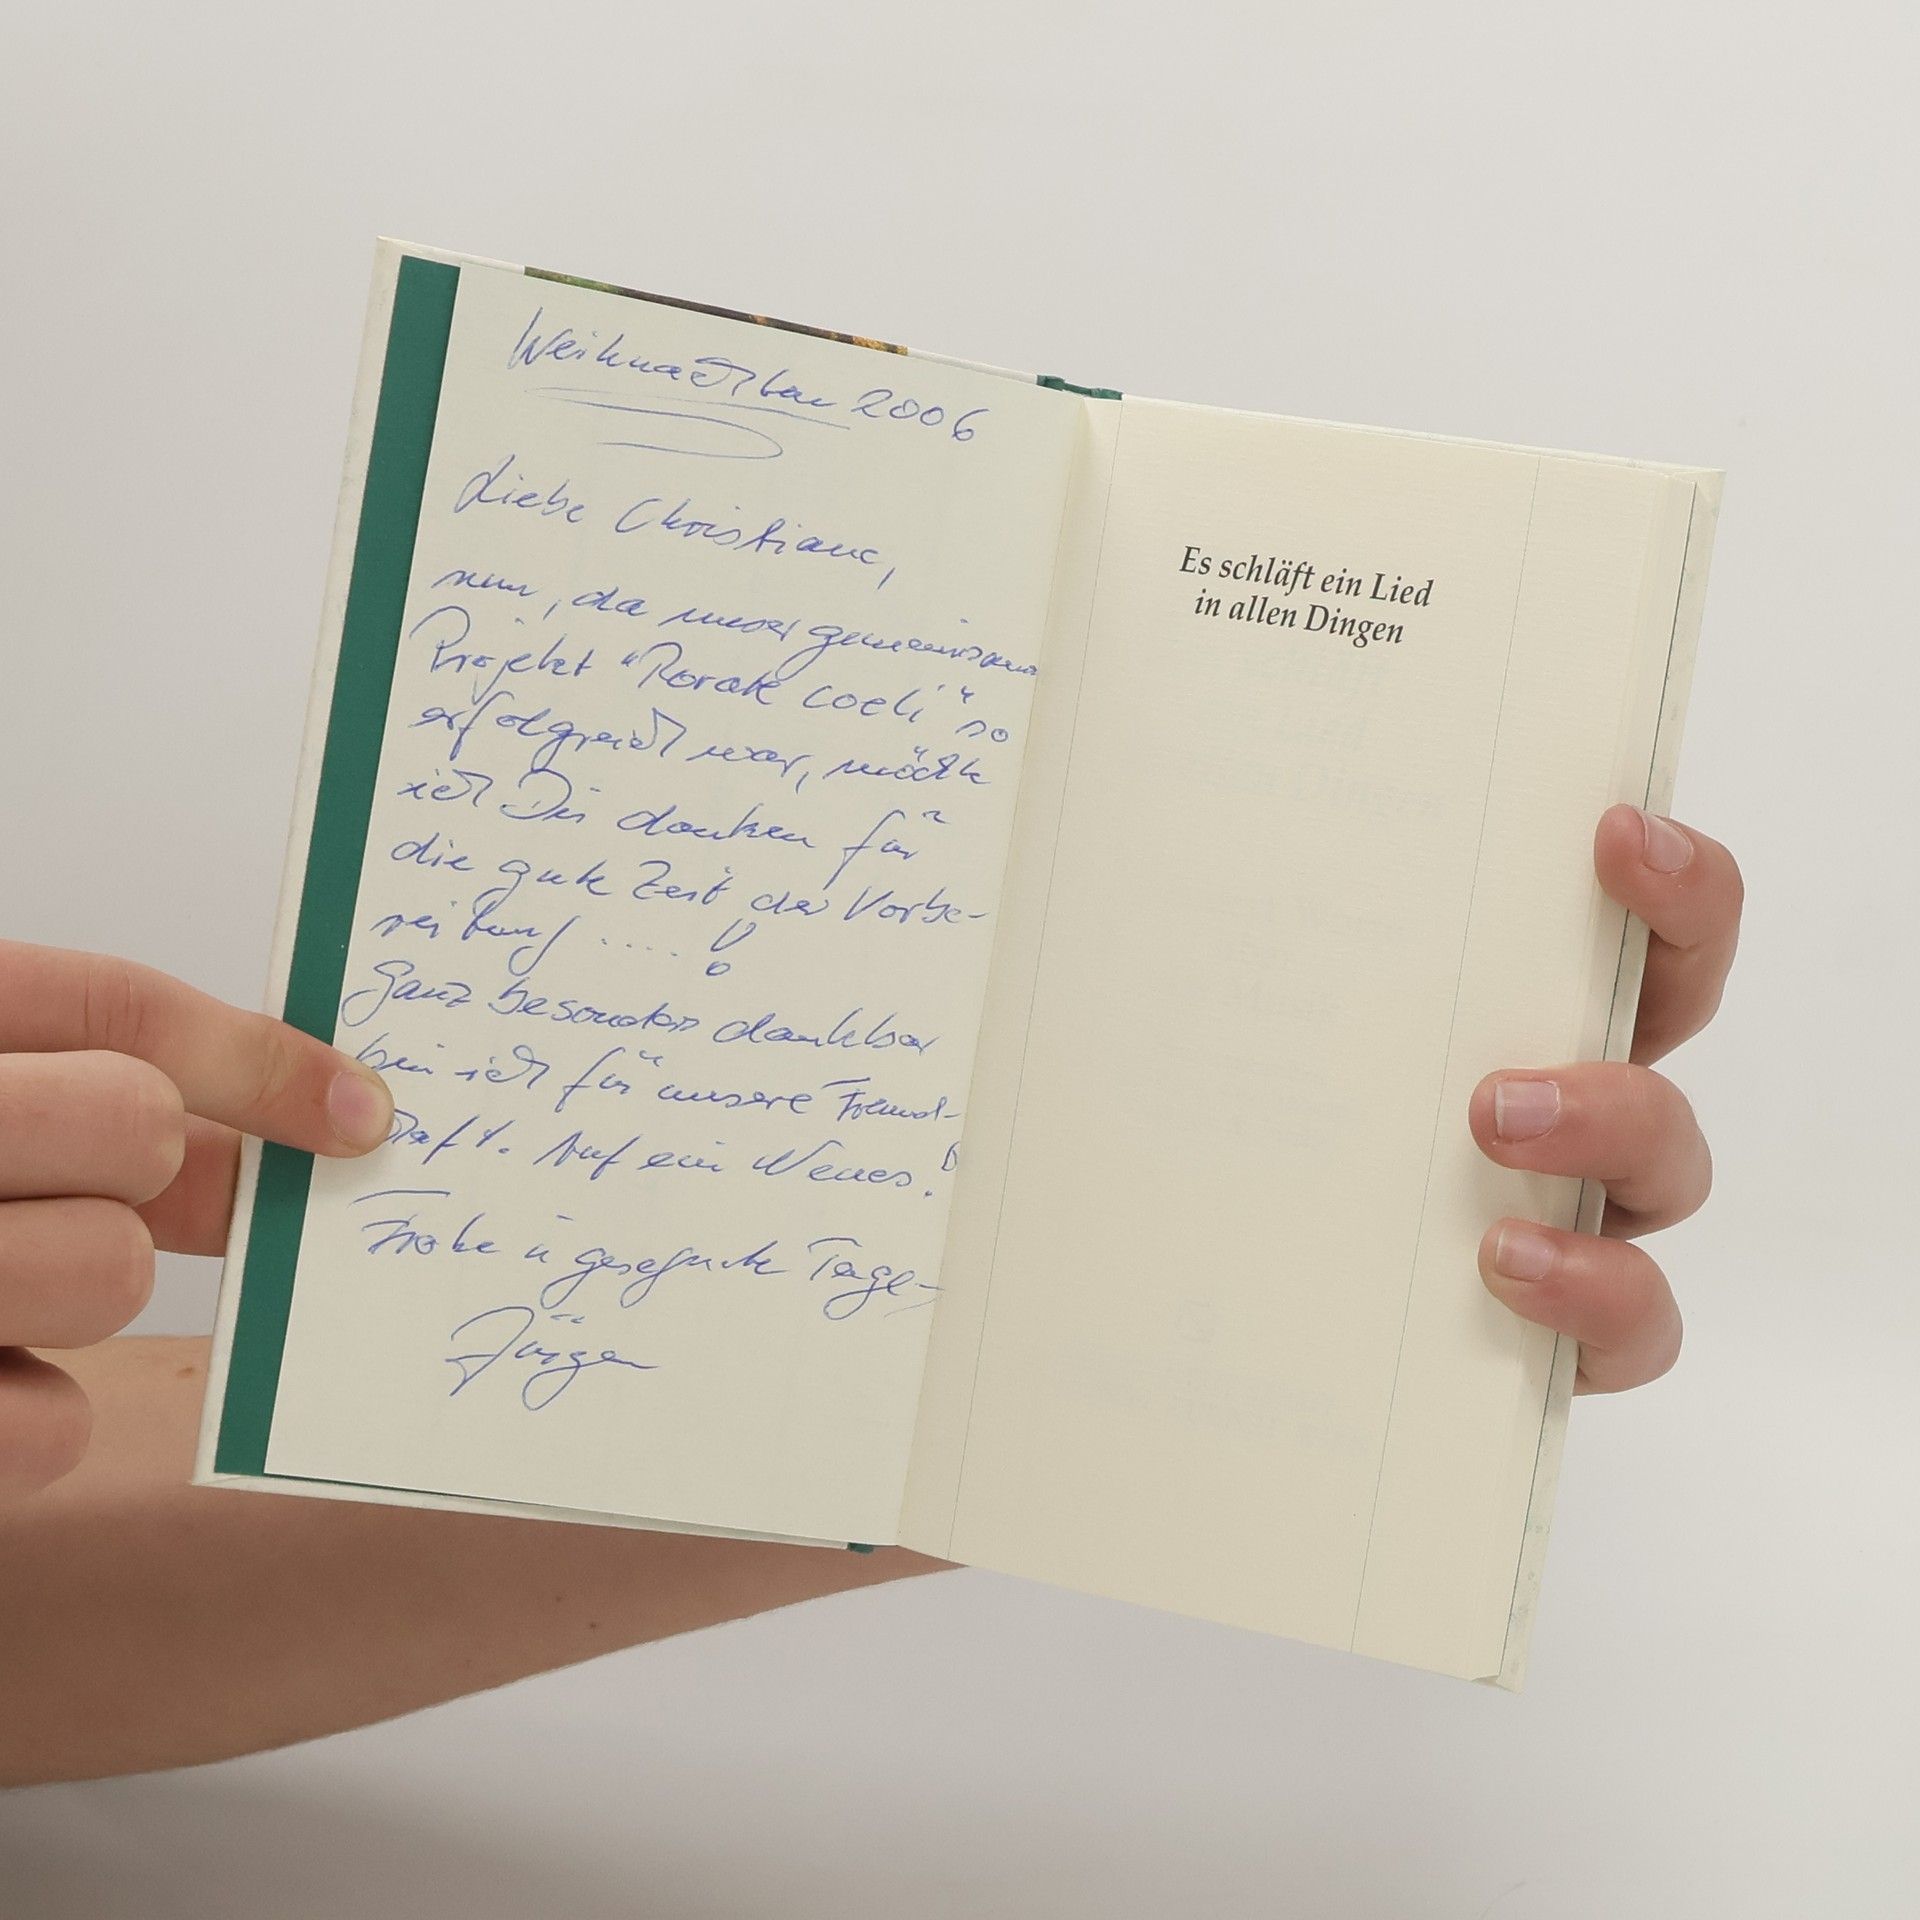 Weihnachten 2006
Liebe Christiane,
nun, da unser gemeinsames
Projekt "Rorate coeli" so
erfolgreich war, möchte
ich Dir danken für
die gute Zeit der Vorbe-
reitung ....!
Ganz besonders dankbar
bin ich für unsere Freund-
schaft. Auf ein Neues!
Frohe u gesegnete Tage,
Jürgen
Es schläft ein Lied
in allen Dingen